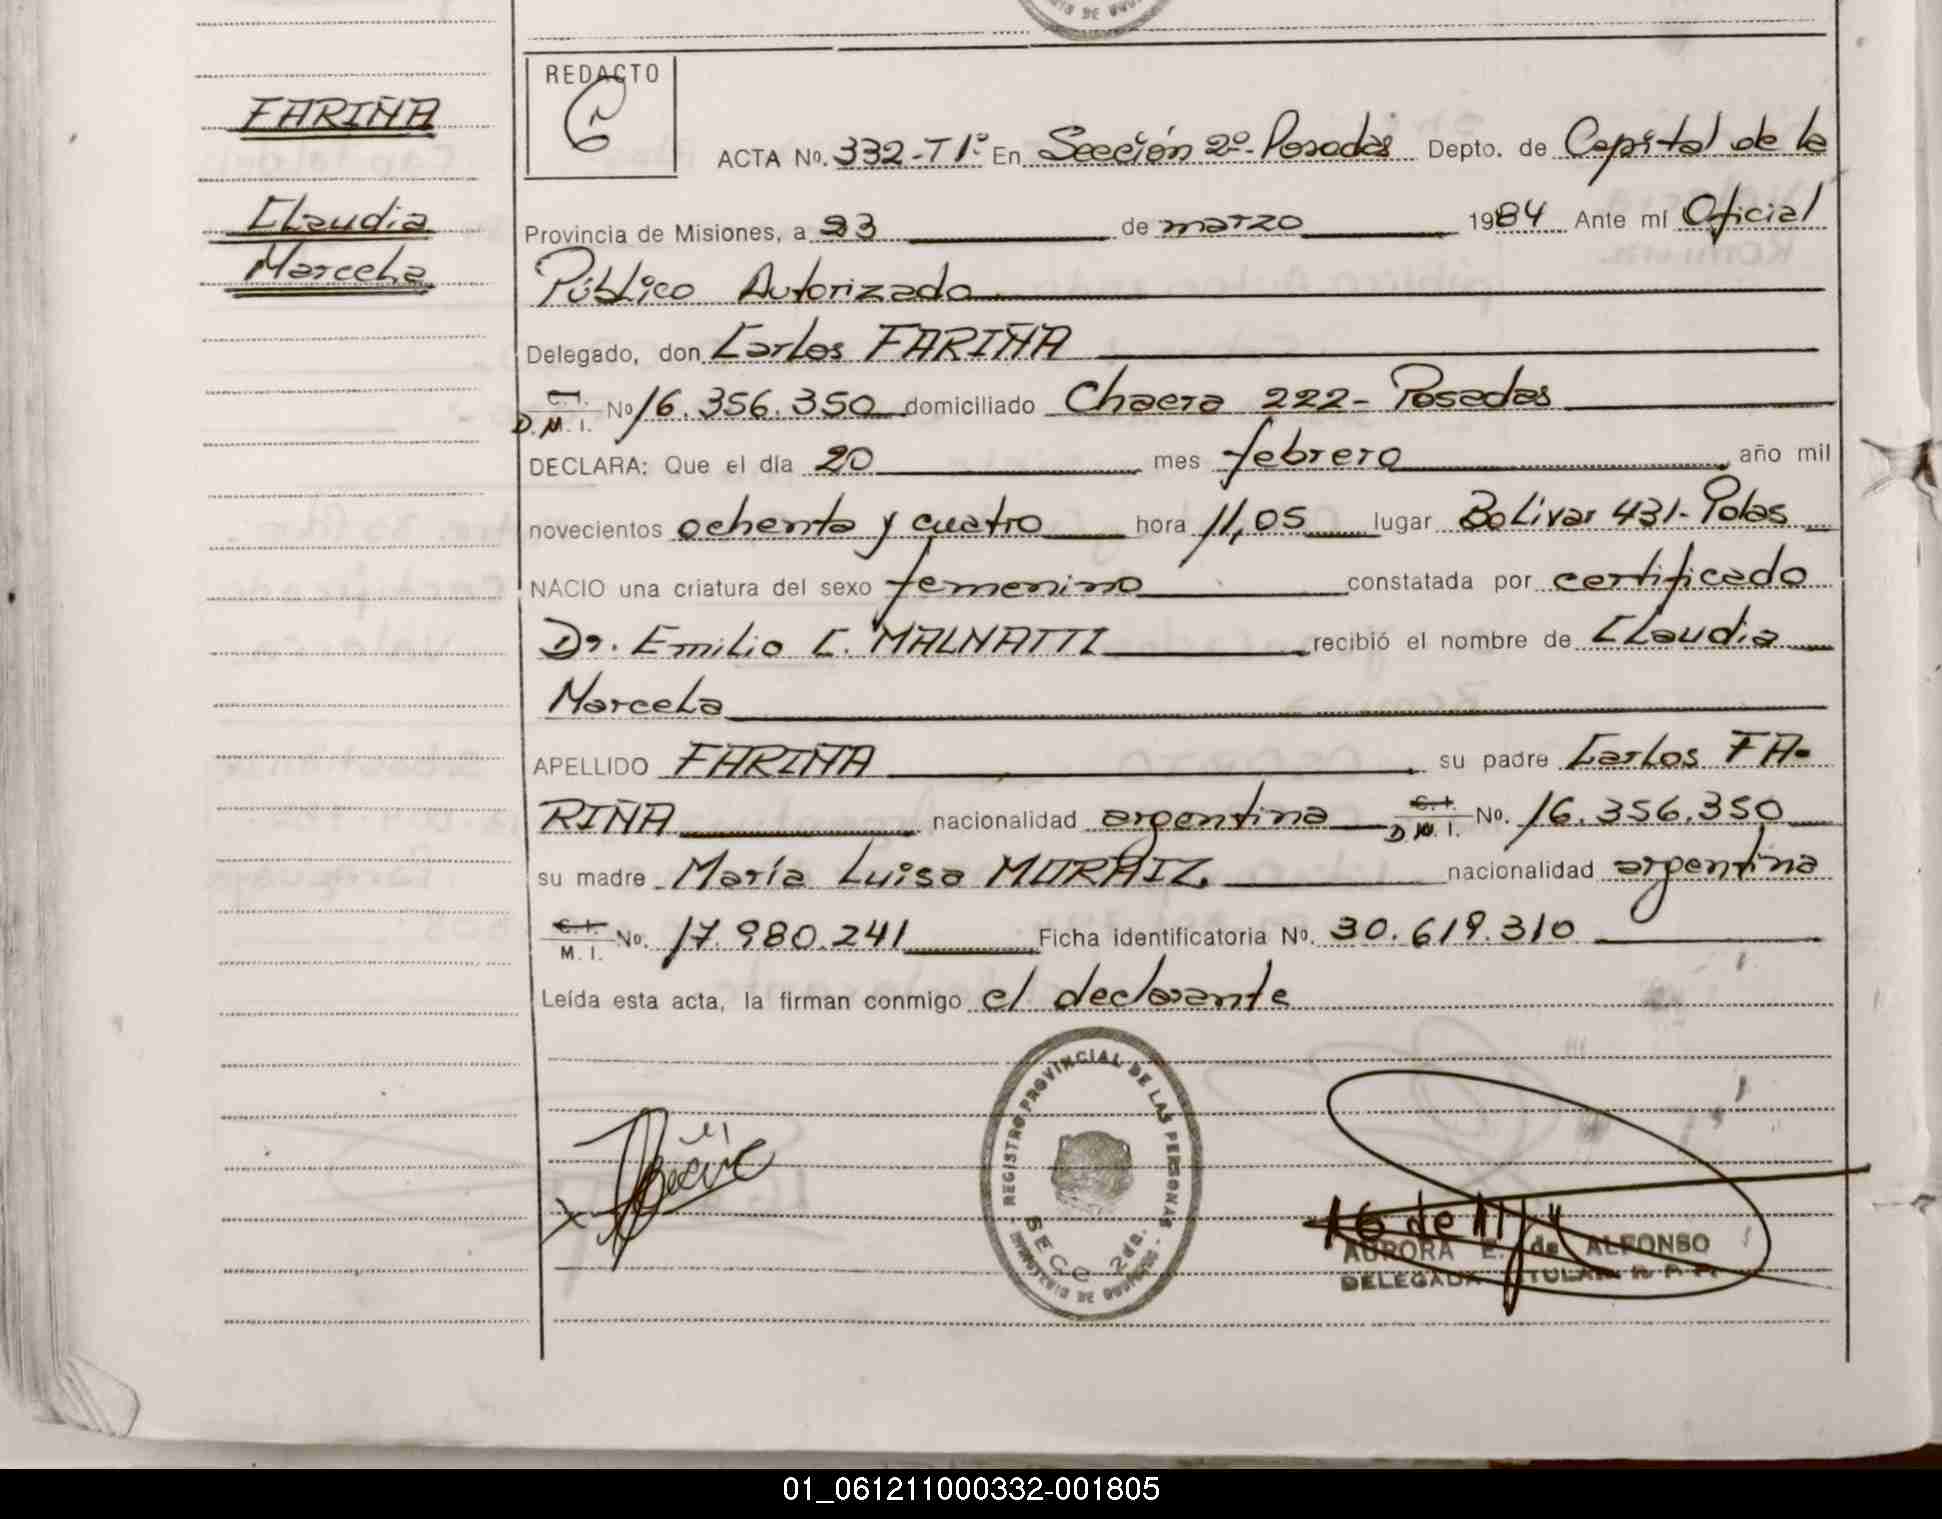 REDACTO
FARIÑA
Claudia
Marcela
ACTA No. 332-T1º En Sección 2º- Posadas Depto. de Capital de la
Provincia de Misiones, a 23 de marzo 1984 Ante mí Oficial
Público Autorizado
Delegado, don Carlos FARIÑA
C.I. D.M.I. No 16.356.350 domiciliado Chacra 222- Posadas
DECLARA: Que el día 20 mes febrero año mil
novecientos ochenta y cuatro hora 11,05 lugar Bolivar 431- Pdas
NACIO una criatura del sexo femenino constatada por certificado
Dr. Emilio C. MALNATTI recibió el nombre de Claudia
Marcela
APELLIDO FARIÑA su padre Carlos FA-
RIÑA nacionalidad argentina C.I. D.N.I. No. 16.356.350
su madre María Luisa MORAIZ nacionalidad argentina
C.I. M.I. No. 17.980.241 Ficha identificatoria No. 30.619.310
Leída esta acta, la firman conmigo el declarante
REGISTRO PROVINCIAL DE LAS PERSONAS
SECC 2da.
MINISTERIO DE GOBIERNO
AURORA E. de ALFONSO
DELEGADA TITULAR R. P. P.
01_061211000332-001805